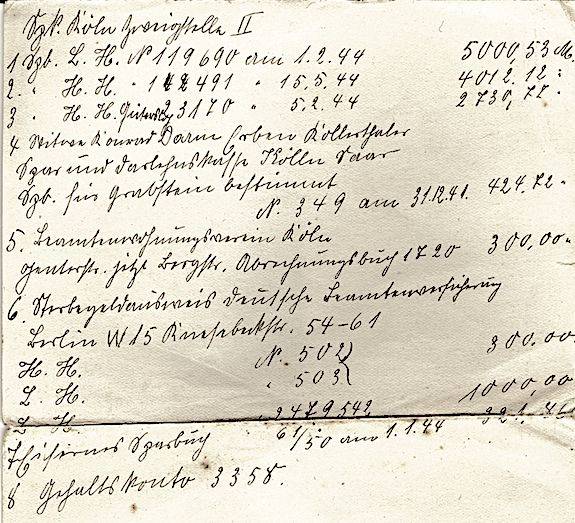 Spk. Köln Zweigstelle II
1 Spb. L. H. № 119690 am 1.2.44 5000,53 M.
2. " H. H. " 112491 " 15.5.44 4012.12 "
3 " H. H. 23170 " 5.2.44 2730,77 "
4 Witwe Konrad Darm Erben Köllerthaler
Spar und Darlehnskasse Kölln Saar
Spb. für Grabstein bestimmt
N. 349 am 31.12.41. 424.72 "
5. Beamtenwohnungsverein Köln
Genterstr. jetzt Bergstr. Abrechnungsbuch 1720 300,00 "
6. Sterbegeldausweis Deutsche Beamtenversicherung
Berlin W 15 Knesebeckstr. 54-61
H. H. N. 502) 300.00
L. H. " 503) 1000,00
L. H. " 2479542
7 Eisernes Sparbuch 61/50 am 1.1.44
8 Gehaltskonto 3358.